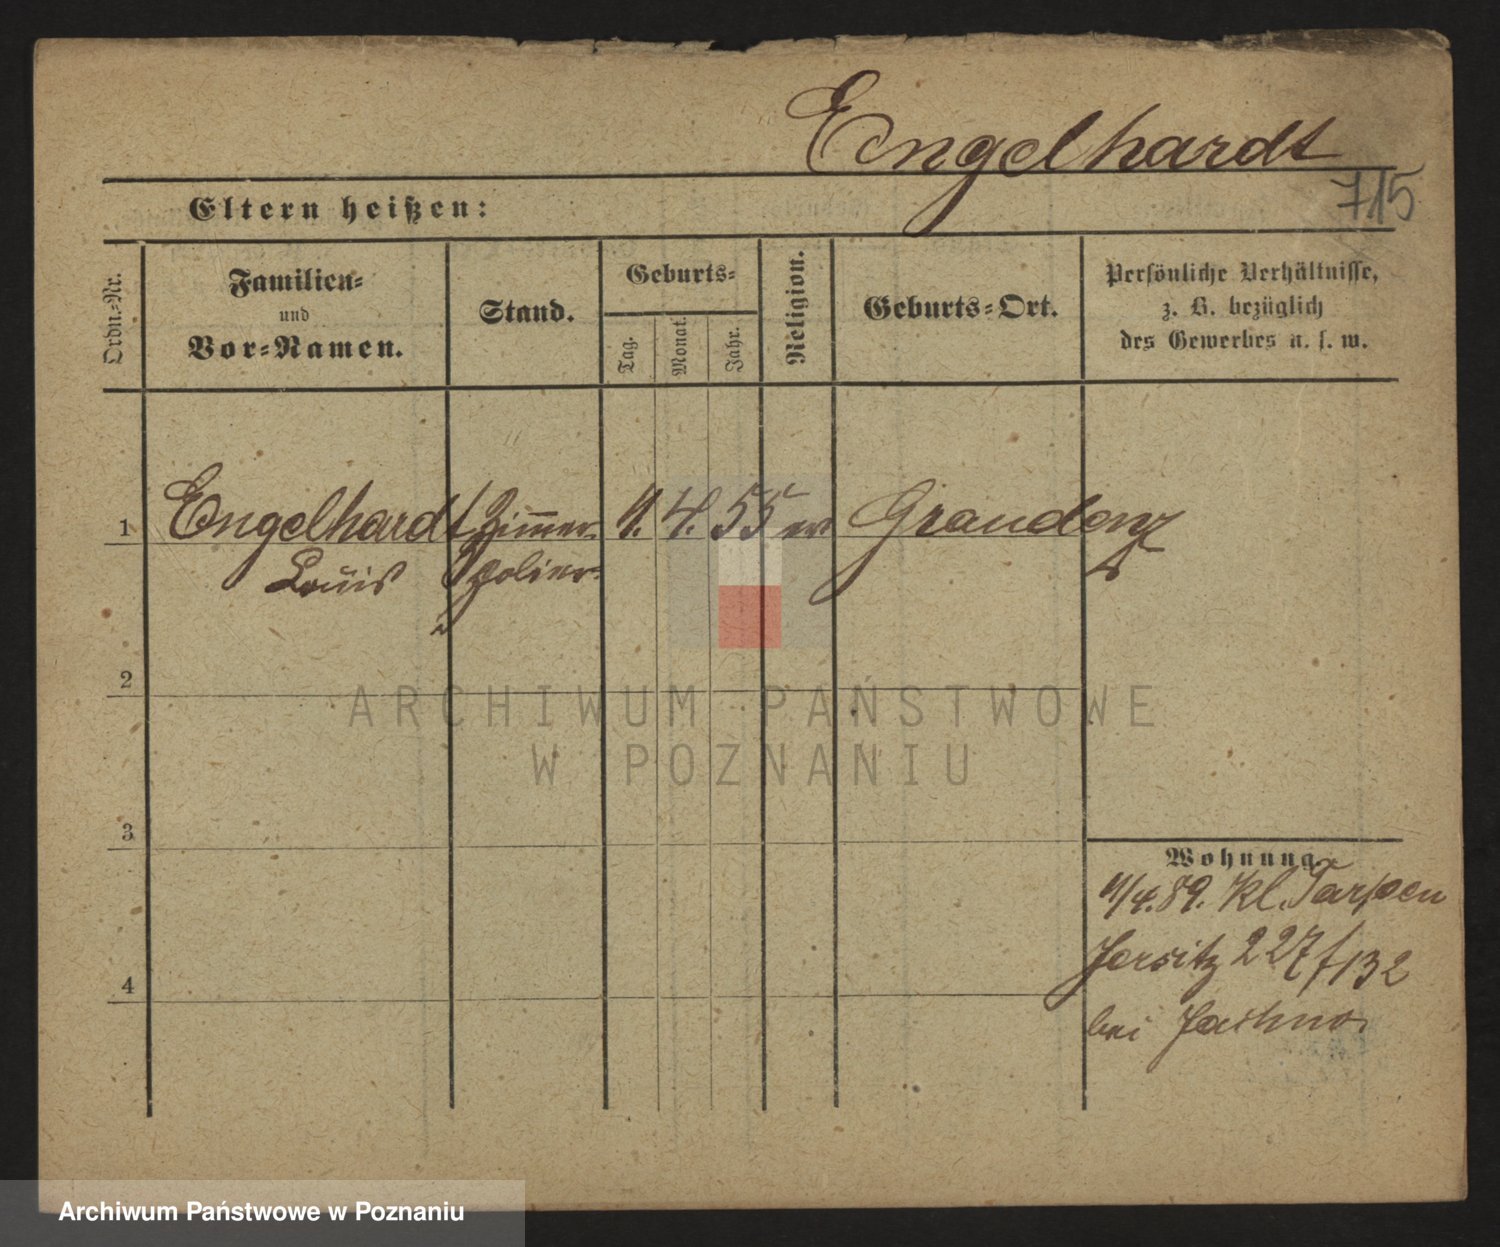 Engelhardt
715
Eltern heißen:
Ordn.-Nr.
Familien-
und
Vor-Namen.
Stand.
Geburts-
Tag.
Monat.
Jahr.
Religion.
Geburts-Ort.
Persönliche Verhältnisse,
z. B. bezüglich
des Gewerbes u. s. w.
1 Engelhardt Zimmer- 4. 55 ev Graudenz
Louis polier
2
3
4
Wohnung.
/4.89. Kl. Tarpen
Jersitz 227/132
bei
ARCHIWUM PAŃSTWOWE
W POZNANIU
Archiwum Państwowe w Poznaniu